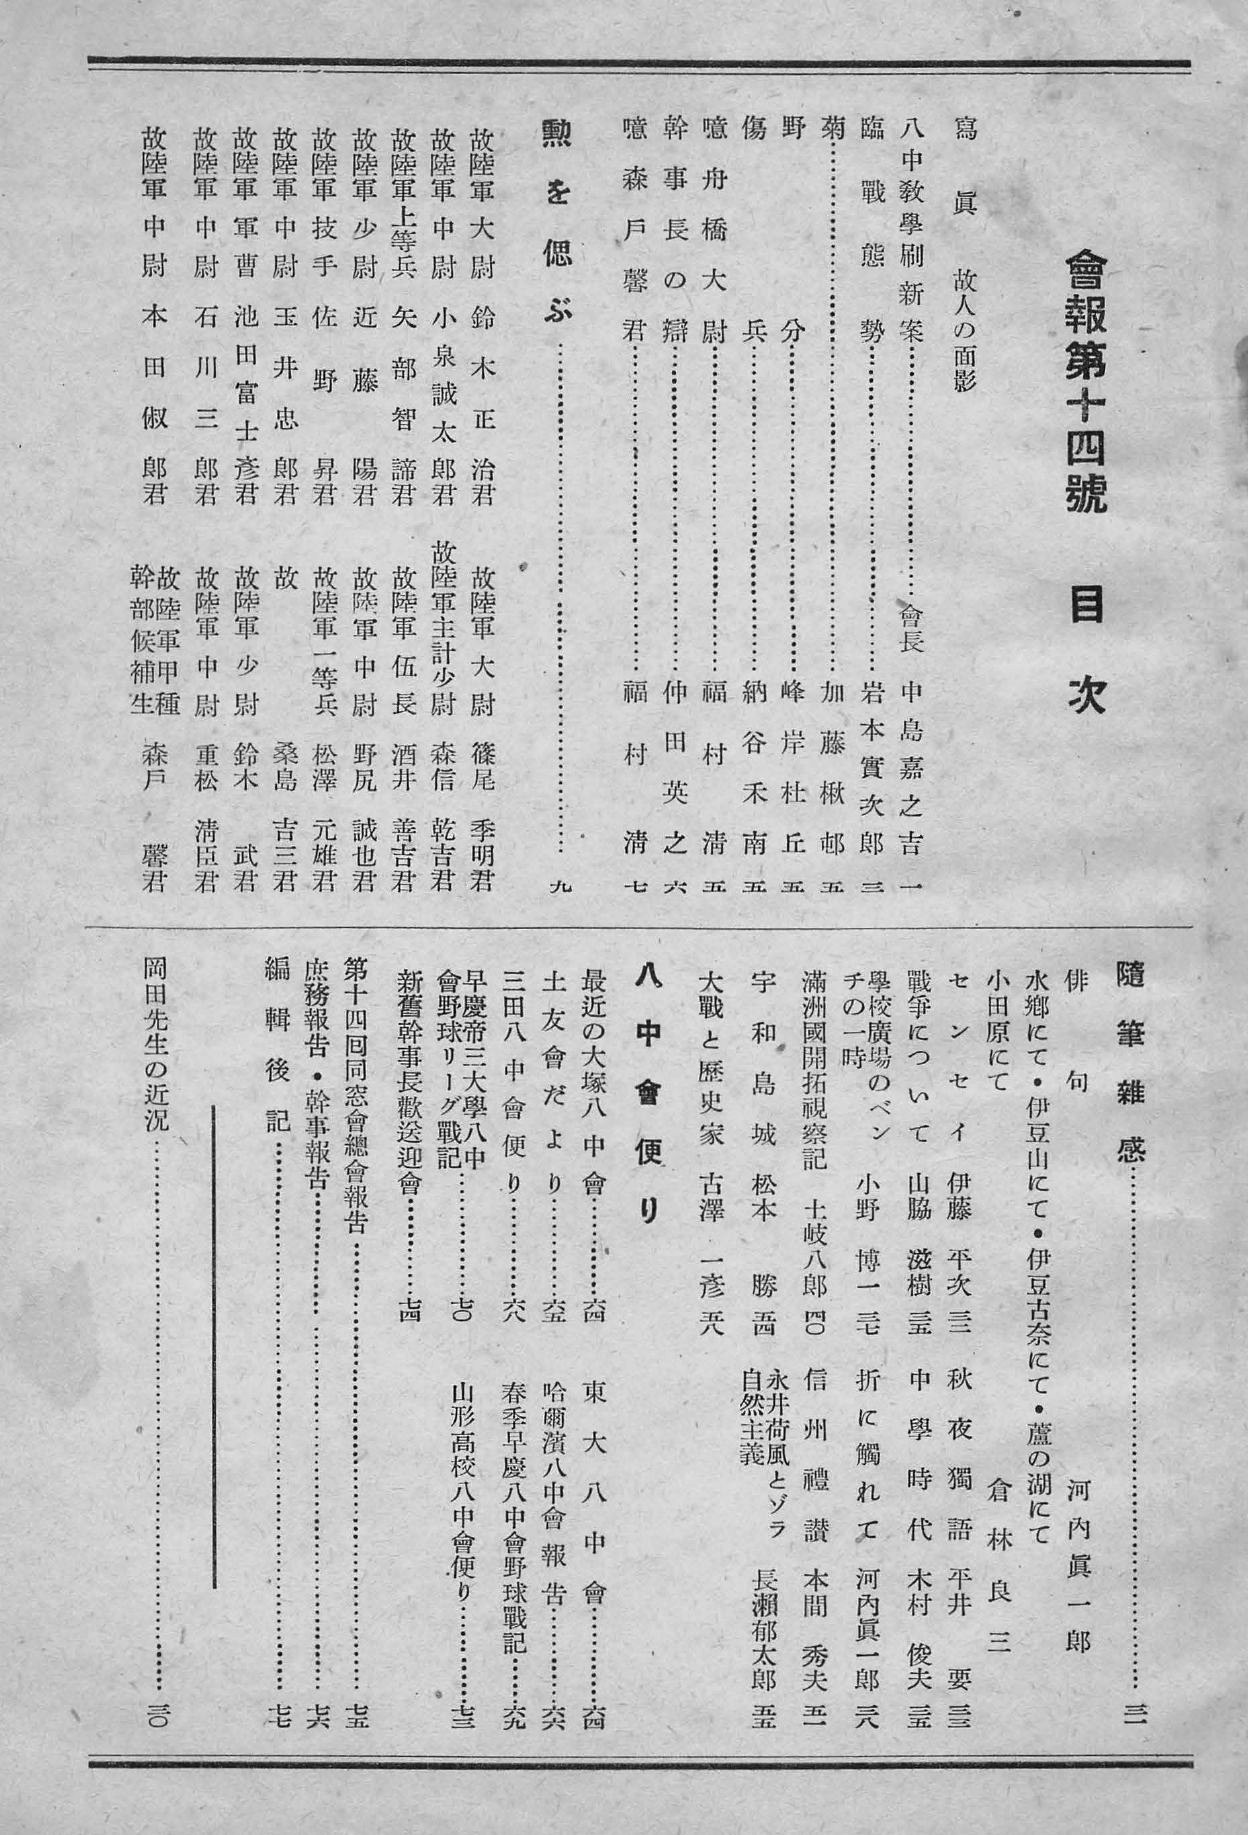 會報第十四號　目次
寫眞　故人の面影
八中敎學刷新案……會長　中島嘉之吉　一
臨戰態勢……岩本實次郎　三
菊……加藤楸邨　五
野分……峰岸杜丘　五
傷兵……納谷禾南　五
噫舟橋大尉……福村淸　五
幹事長の辯……仲田英之　六
噫森戶馨君……福村淸　七
勲を偲ぶ……九
故陸軍大尉　鈴木正治君　故陸軍大尉　篠尾季明君
故陸軍中尉　小泉誠太郎君　故陸軍主計少尉　森信乾吉君
故陸軍上等兵　矢部智諦君　故陸軍伍長　酒井善吉君
故陸軍少尉　近藤陽君　故陸軍中尉　野尻誠也君
故陸軍技手　佐野昇君　故陸軍一等兵　松澤元雄君
故陸軍中尉　玉井忠郎君　故　桑島吉三君
故陸軍軍曹　池田富士彥君　故陸軍少尉　鈴木武君
故陸軍中尉　石川三郎君　故陸軍中尉　重松淸臣君
故陸軍中尉　本田俶郎君　故陸軍甲種幹部候補生　森戶馨君
隨筆雜感……三一
俳句　河內眞一郎
水鄕にて・伊豆山にて・伊豆古奈にて・蘆の湖にて
小田原にて　倉林良三
センセイ　伊藤平次　三二　秋夜獨語　平井要　三三
戰爭について　山脇滋樹　三五　中學時代　木村俊夫　三五
學校廣場のベンチの一時　小野博一　三七　折に觸れて　河內眞一郎　三八
滿洲國開拓視察記　土岐八郎　四〇　信州禮讃　本間秀夫　五一
宇和島城　松本勝　五四　永井荷風とゾラ自然主義　長瀨郁太郎　五五
大戰と歷史家　古澤一彥　五八
八中會便り
最近の大塚八中會……六四　東大八中會……六四
土友會だより……六五　哈爾濱八中會報吿……六六
三田八中會便り……六八　春季早慶八中會野球戰記……六九
早慶帝三大學八中會野球リーグ戰記……七〇　山形高校八中會便り……七三
新舊幹事長歡送迎會……七四
第十四囘同窓會總會報吿……七五
庶務報吿・幹事報吿……七六
編輯後記……七七
岡田先生の近況……三〇